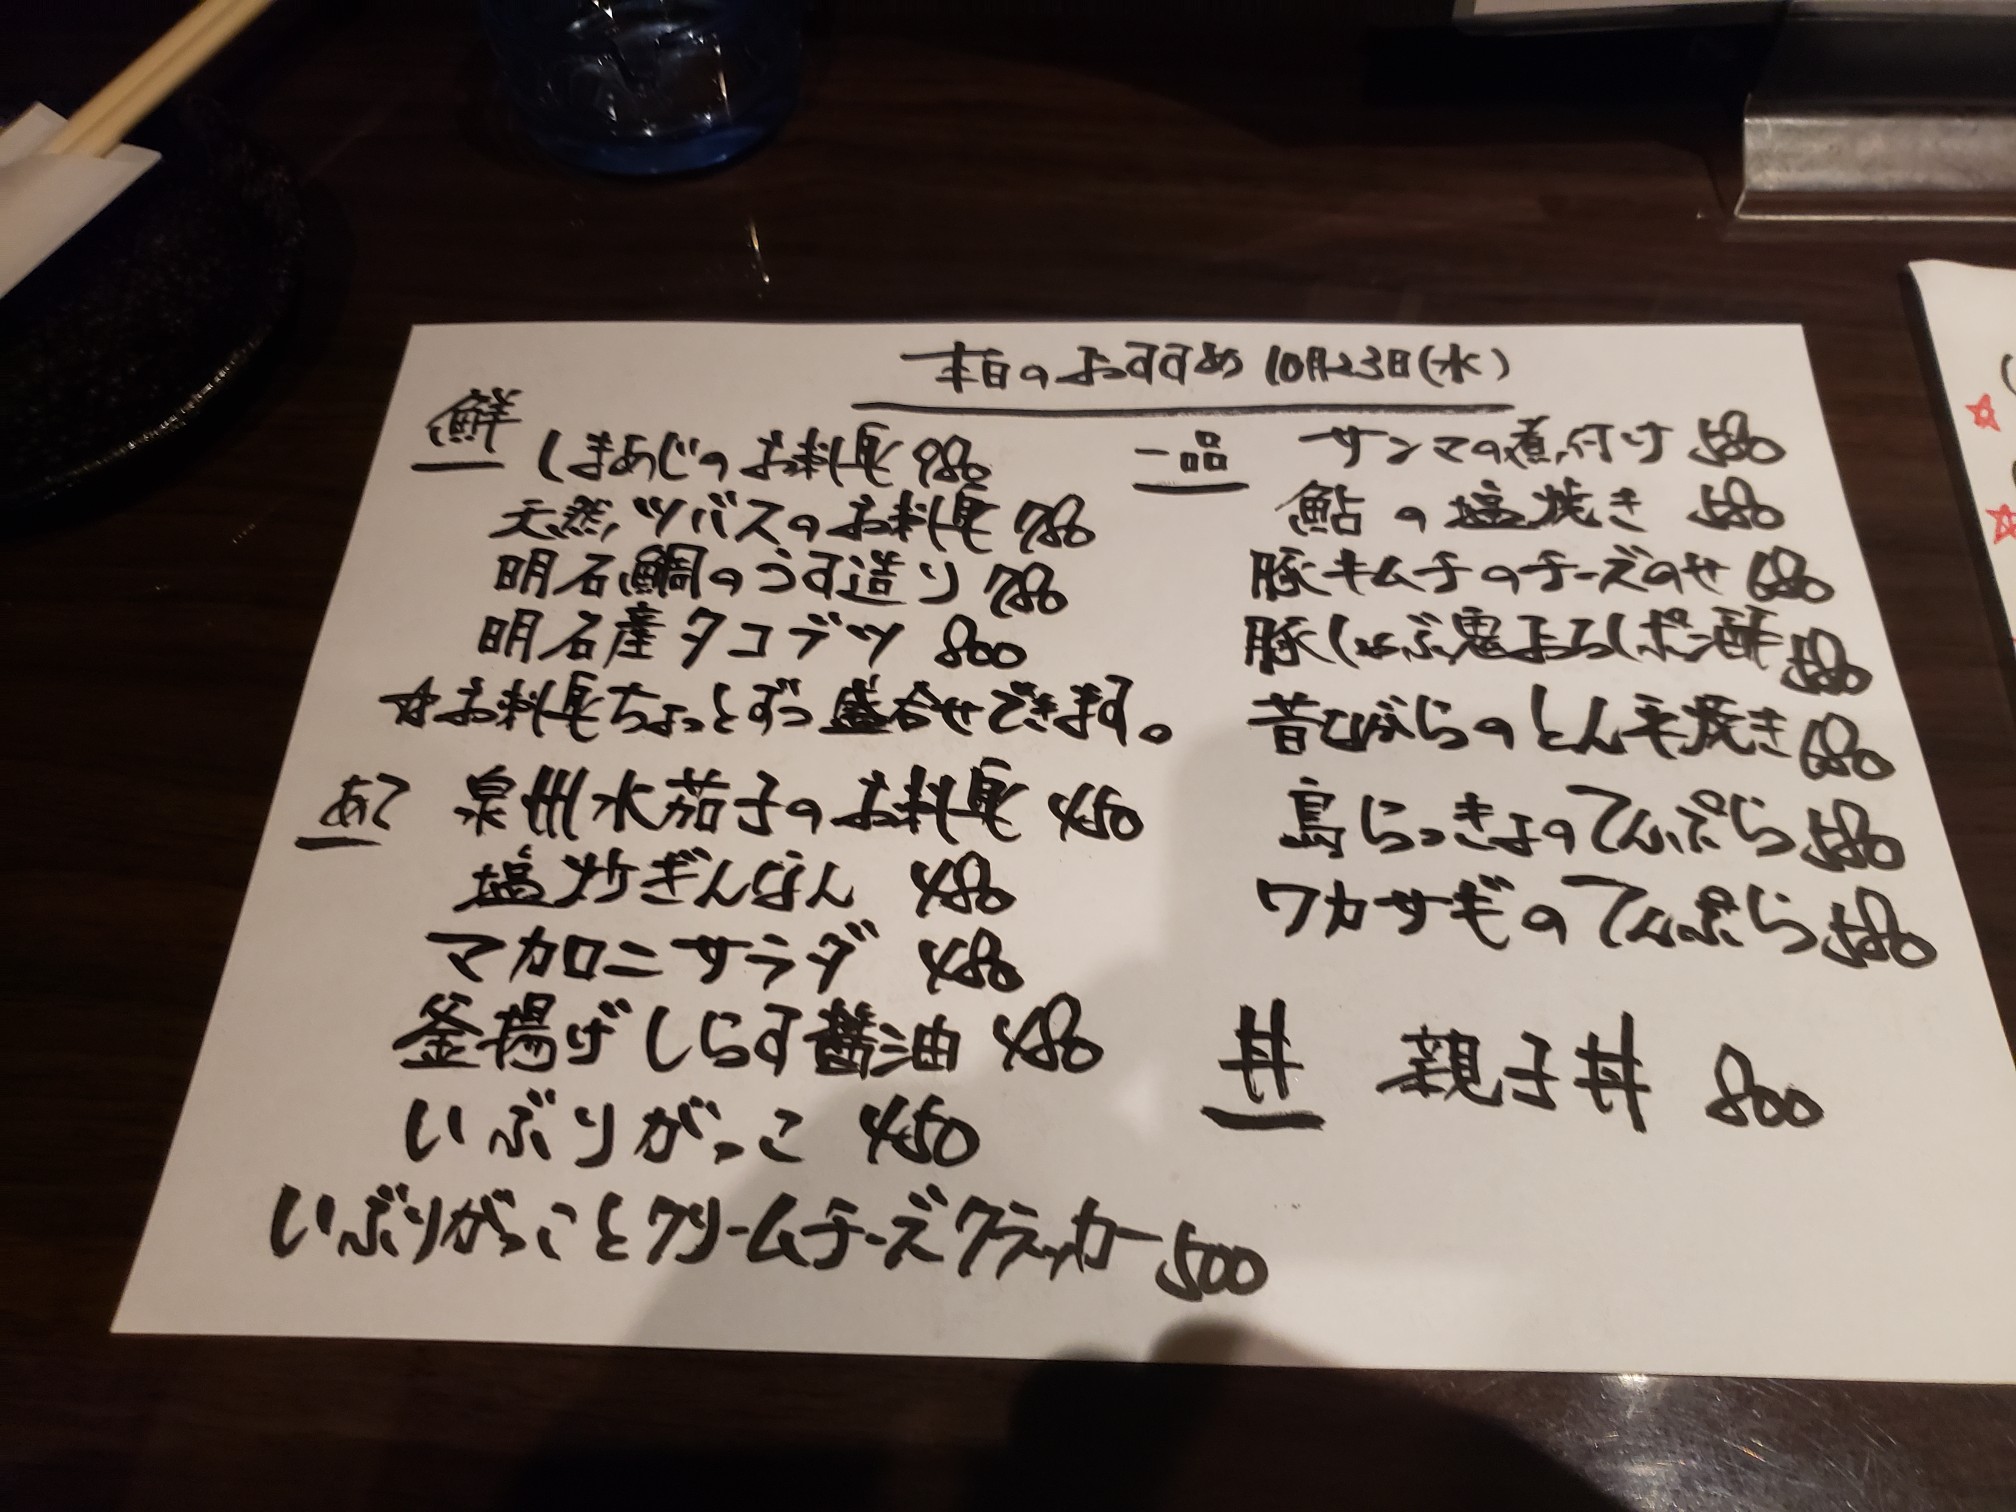 本日のおすすめ 10月23日(水)
鮮
しまあじのお料理 980
天然ツバスのお料理 780
明石鯛のうす造り 780
明石産タコブツ 800
☆お料理ちょっとずつ盛合せできます。
あて
泉州水茄子のお料理 450
塩炒ぎんなん 480
マカロニサラダ 480
釜揚げしらす醤油 480
いぶりがっこ 450
いぶりがっことクリームチーズクラッカー 500
一品
サンマの煮付け 580
鮎の塩焼き 580
豚キムチのチーズのせ 680
豚しゃぶ鬼おろしポン酢 580
昔ながらのとん平焼き 680
島らっきょのてんぷら 580
ワカサギのてんぷら 580
丼
親子丼 800